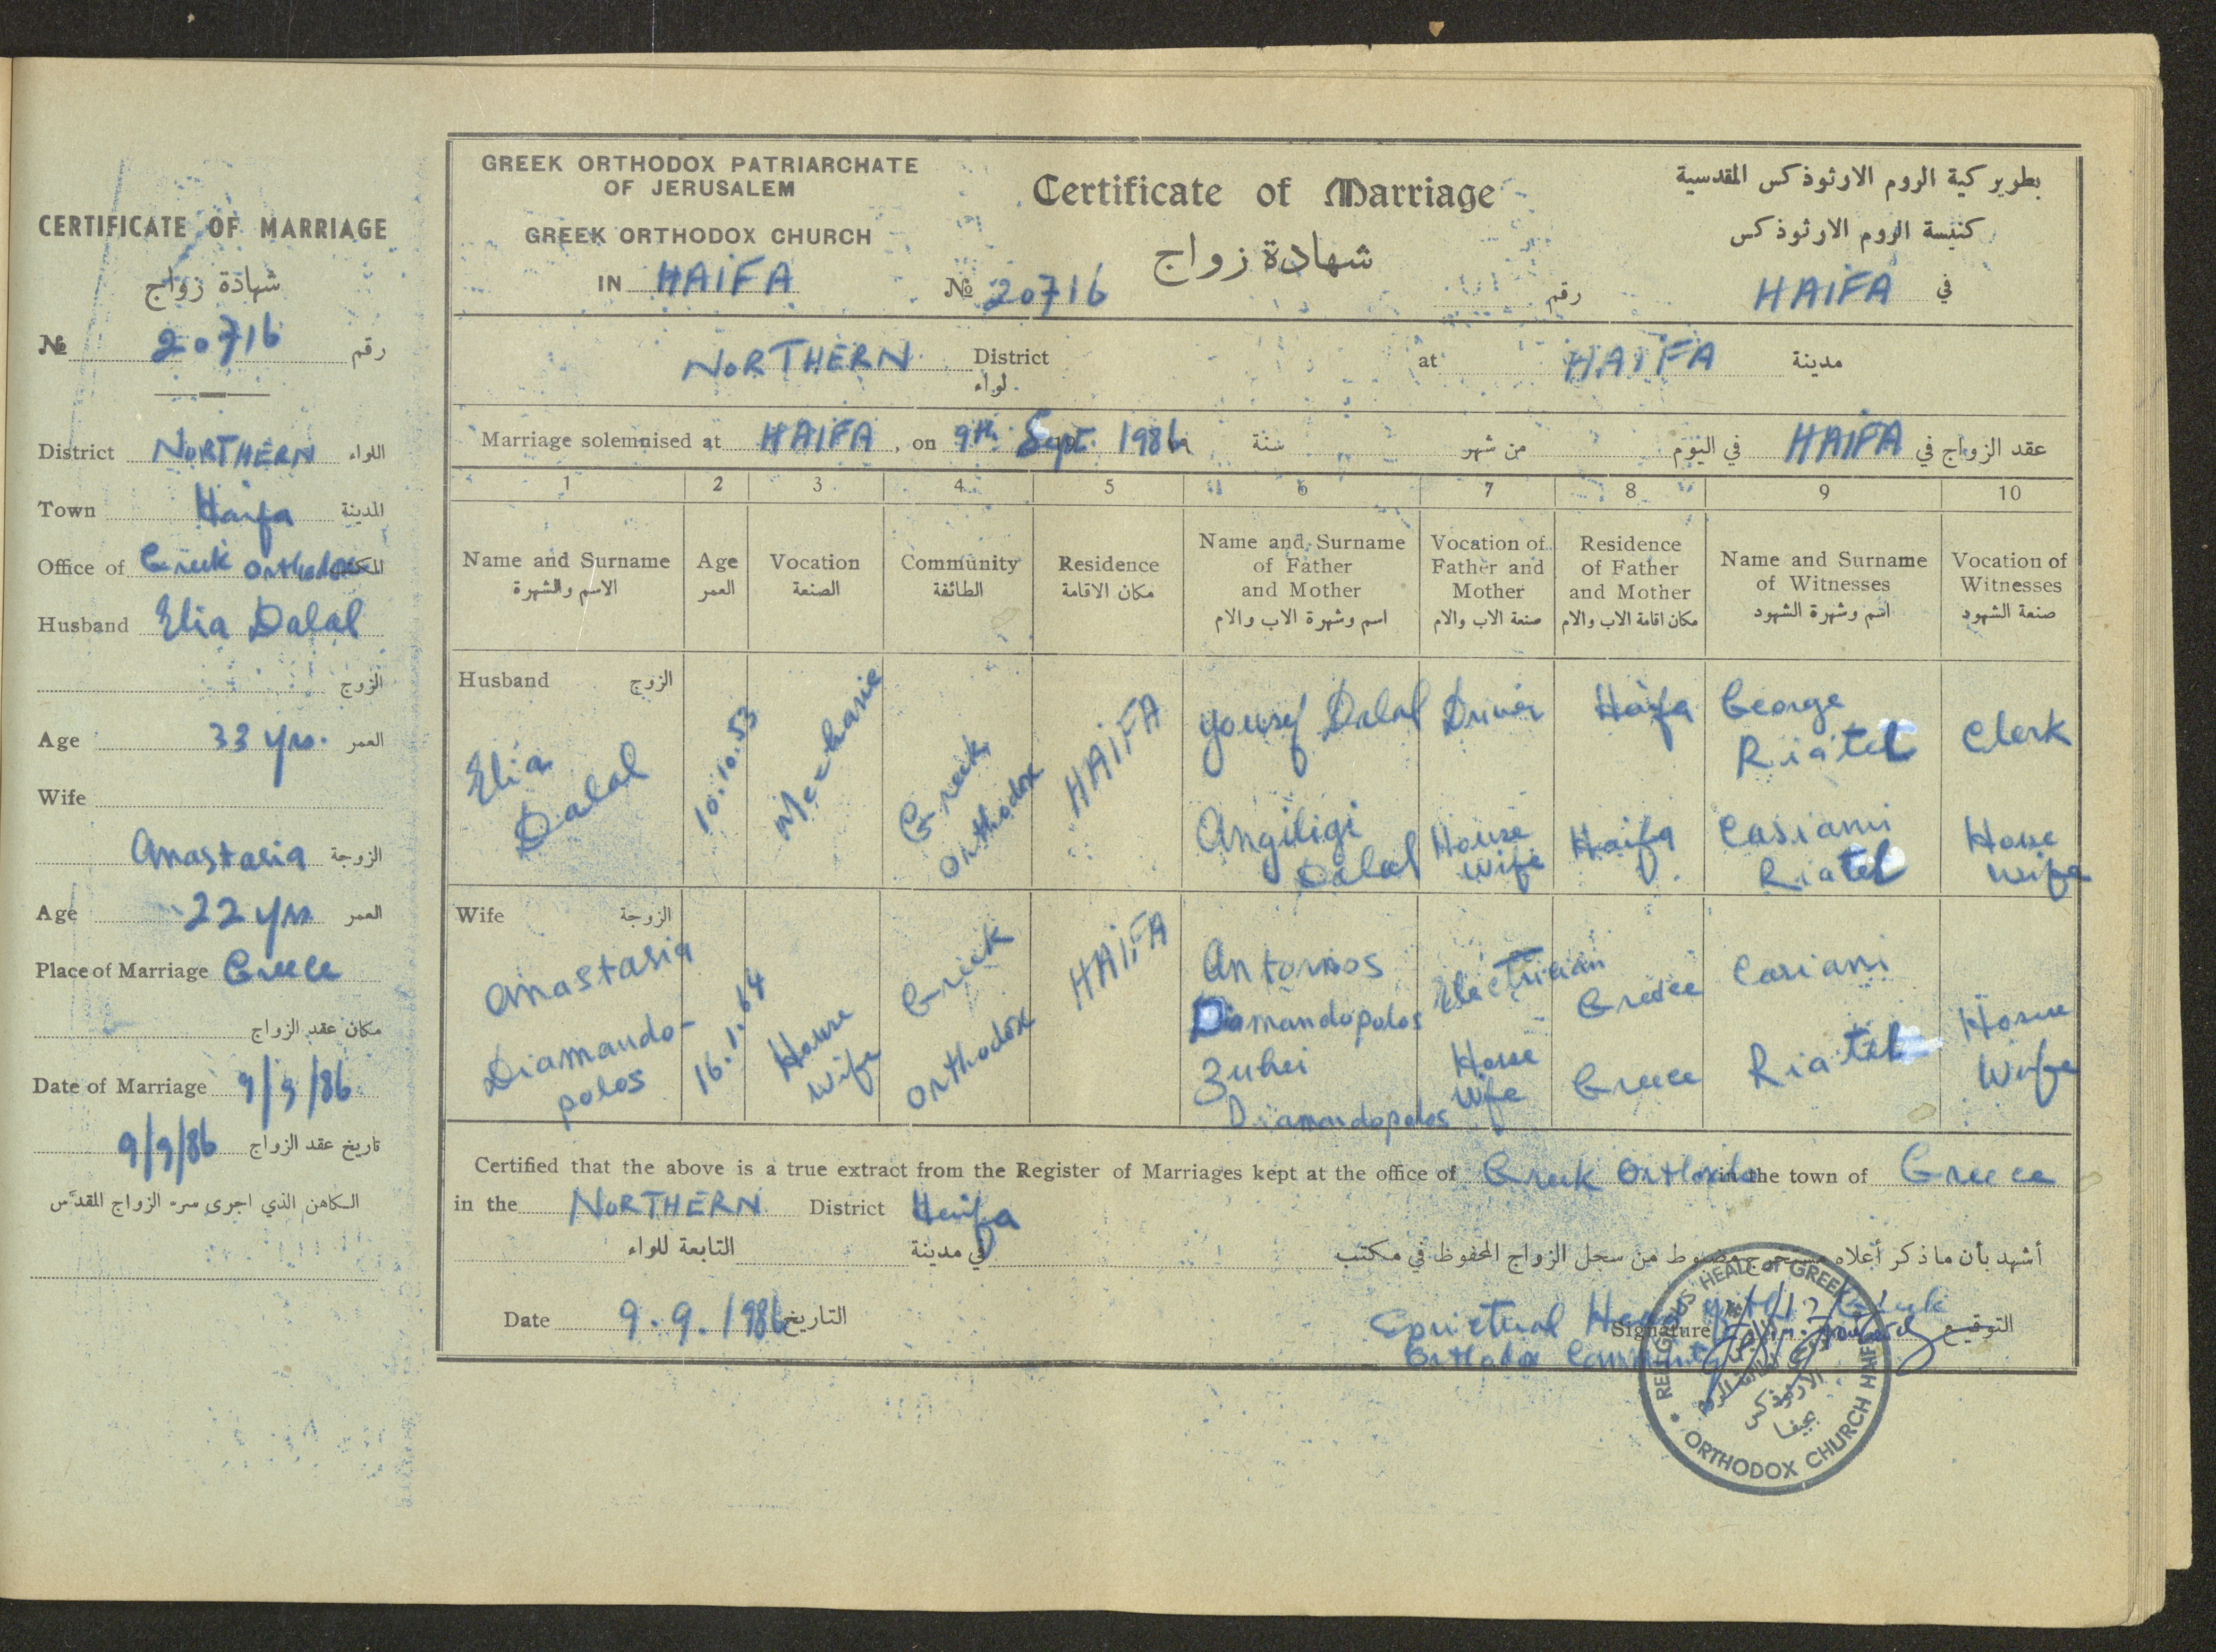 CERTIFICATE OF MARRIAGE
شهادة زواج
№ 20716 رقم
District NORTHERN اللواء
Town Haifa المدينة
Office of Greek Orthodox المكتب
Husband Elia Dalal
الزوج
Age 33 yrs. العمر
Wife
Anastasia الزوجة
Age 22 yrs العمر
Place of Marriage Greece
مكان عقد الزواج
Date of Marriage 9/9/86
9/9/86 تاريخ عقد الزواج
الكاهن الذي اجرى سر الزواج المقدس
GREEK ORTHODOX PATRIARCHATE
OF JERUSALEM
GREEK ORTHODOX CHURCH
IN HAIFA
Certificate of Marriage
شهادة زواج
№ 20716 رقم
بطريركية الروم الارثوذكس المقدسية
كنيسة الروم الارثوذكس
في HAIFA
NORTHERN District at HAIFA مدينة
لواء
Marriage solemnised at HAIFA, on 9th Sept. 1986 سنة من شهر في اليوم HAIFA عقد الزواج في
1 2 3 4 5 6 7 8 9 10
Name and Surname
الاسم والشهرة
Age
العمر
Vocation
الصنعة
Community
الطائفة
Residence
مكان الاقامة
Name and Surname
of Father
and Mother
اسم وشهرة الاب والام
Vocation of
Father and
Mother
صنعة الاب والام
Residence
of Father
and Mother
مكان اقامة الاب والام
Name and Surname
of Witnesses
اسم وشهرة الشهود
Vocation of
Witnesses
صنعة الشهود
Husband الزوج
Elia
Dalal
10.10.53
Mechanic
Greek
Orthodox
HAIFA
Yousef Dalal
Angiligi
Dalal
Driver
House
wife
Haifa
Haifa
George
Riatel
Casiani
Riatel
Clerk
House
wife
Wife الزوجة
Anastasia
Diamando-
polos
16.1.64
House
wife
Greek
Orthodox
HAIFA
Antonios
Diamandopolos
Zuhei
Diamandopolos
Electrician
House
wife
Greece
Greece
Casiani
Riatel
House
Wife
Certified that the above is a true extract from the Register of Marriages kept at the office of Greek Orthodox in the town of Greece
in the NORTHERN District Haifa
أشهد بأن ما ذكر أعلاه صحيح ومضبوط من سجل الزواج المحفوظ في مكتب في مدينة التابعة للواء
Date 9.9.1986 التاريخ
Signature التوقيع
Orthodox Community
RELIGIOUS HEAD OF GREEK
ORTHODOX CHURCH HAIFA
الارثوذكس
بحيفا